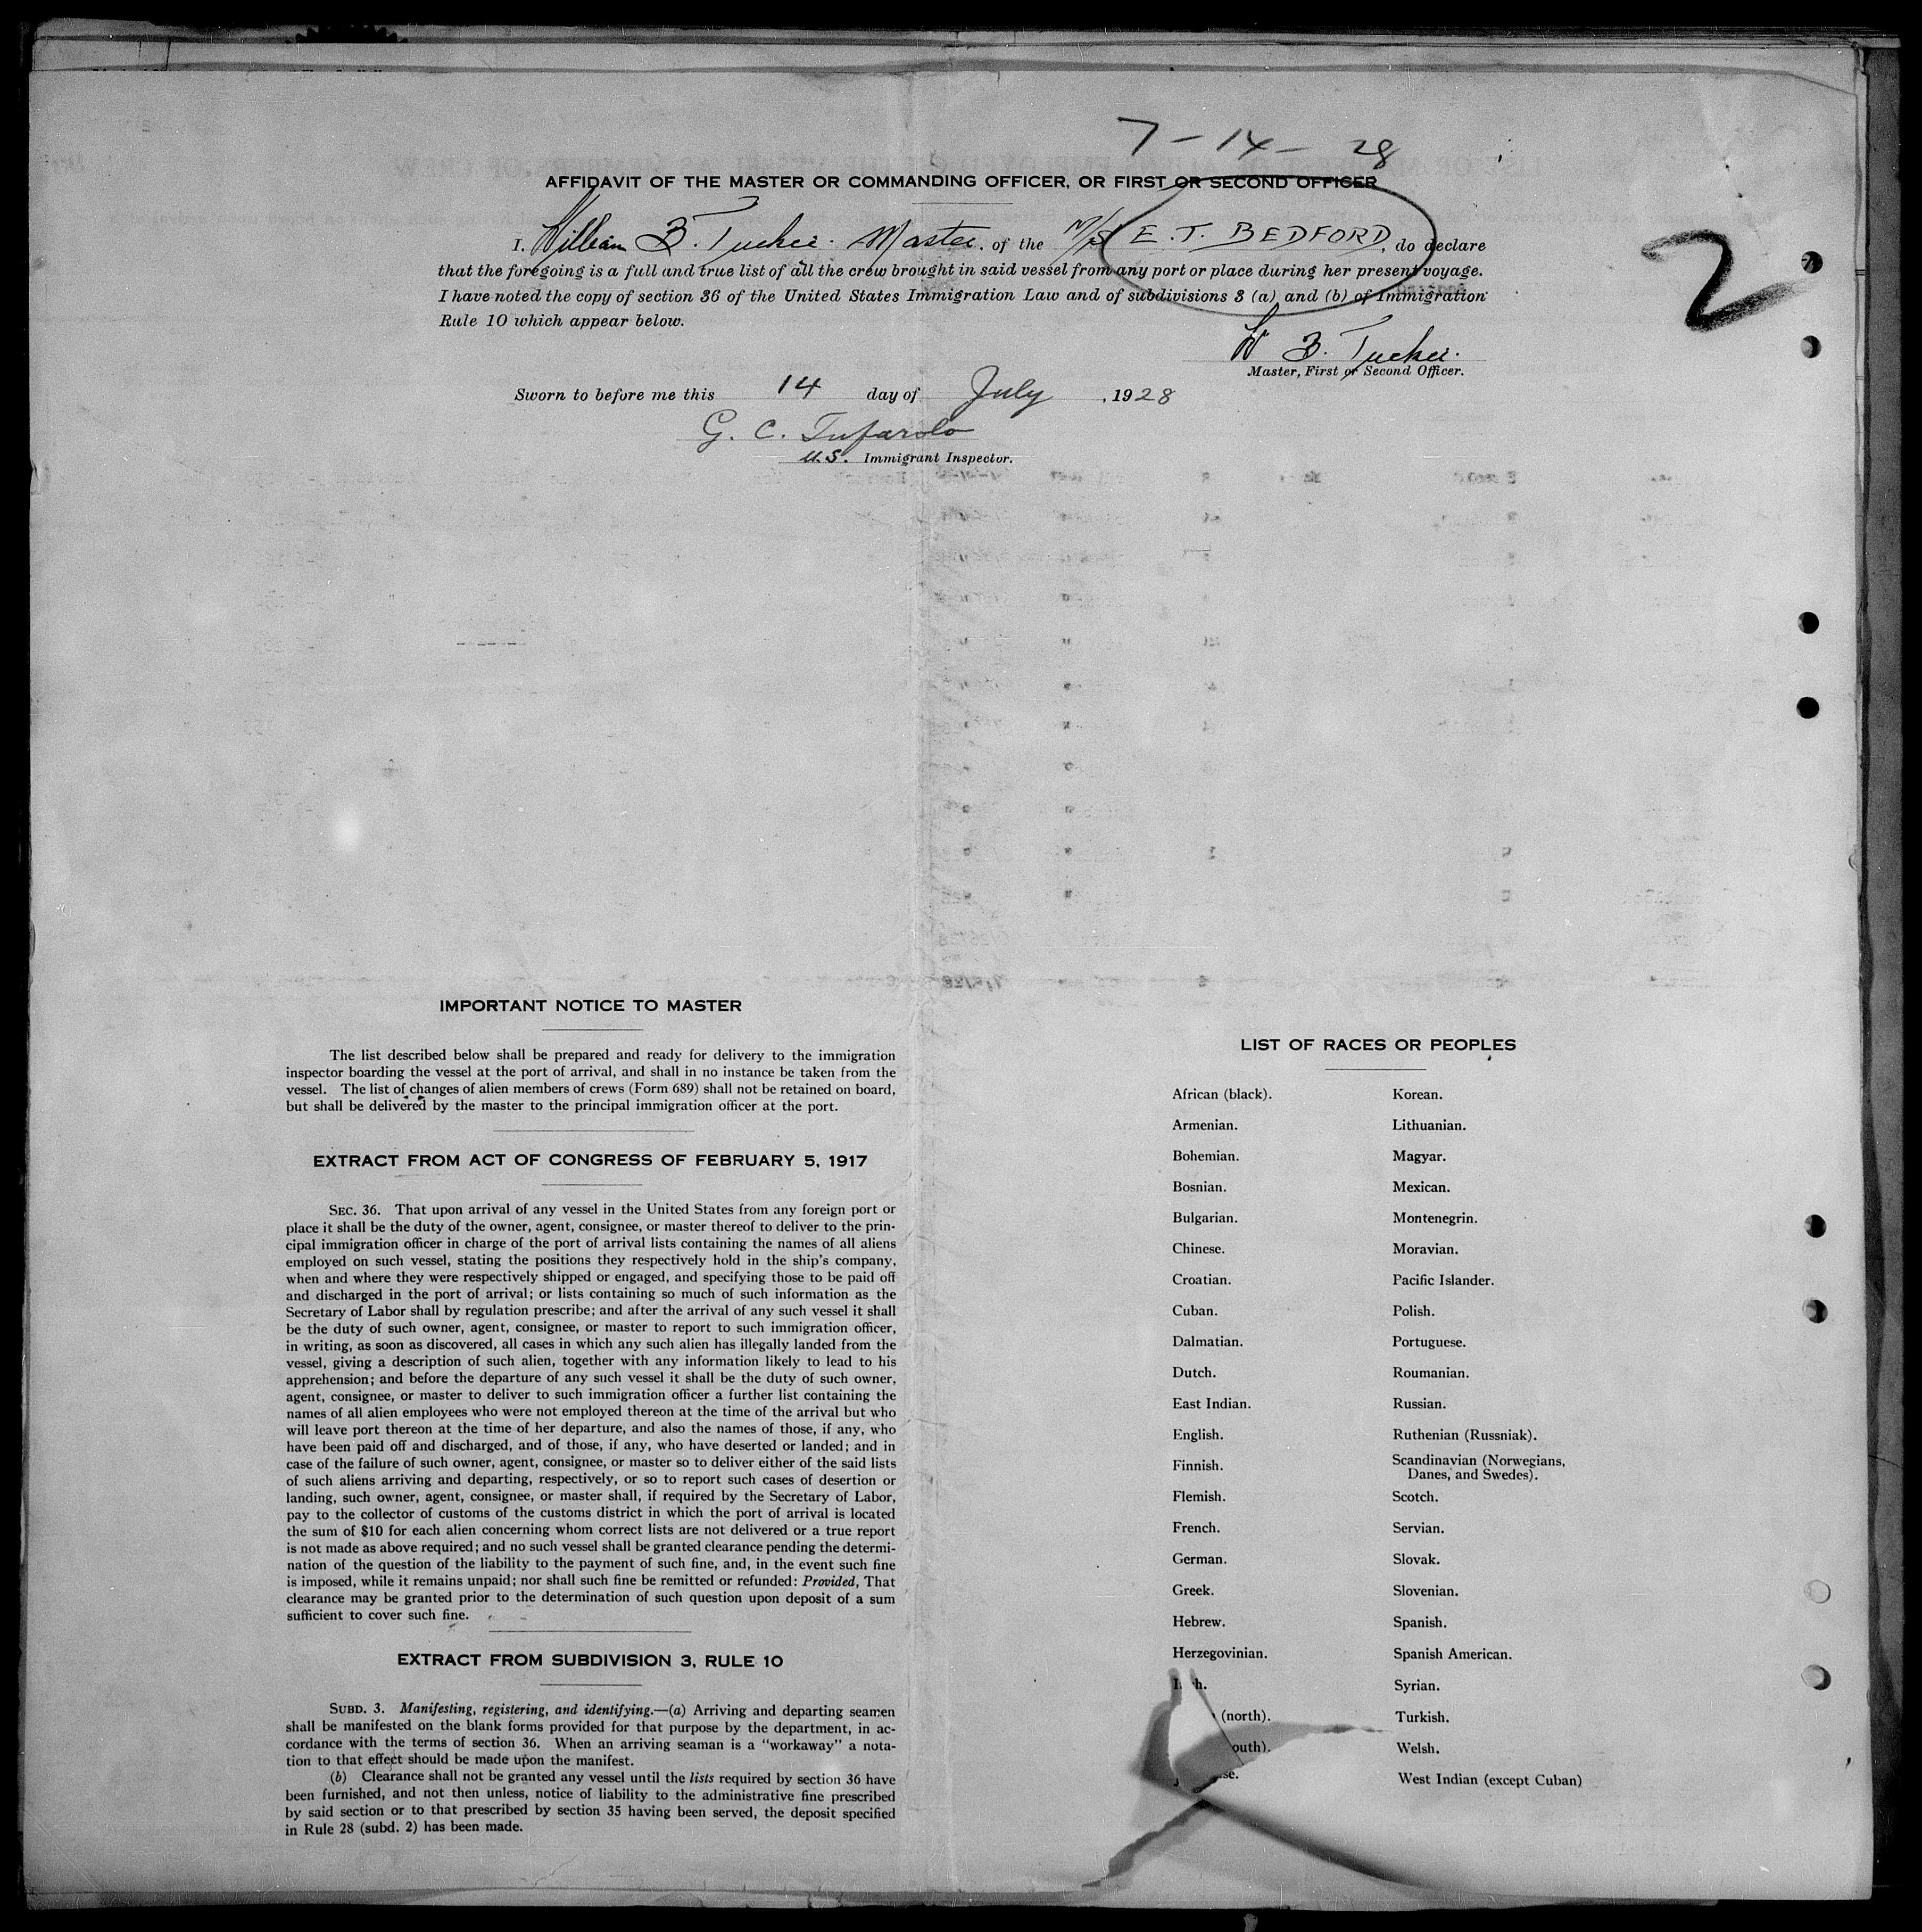 7-14-28
AFFIDAVIT OF THE MASTER OR COMMANDING OFFICER, OR FIRST OR SECOND OFFICER
I, William B. Tucker. Master, of the M/S E. T. BEDFORD, do declare
that the foregoing is a full and true list of all the crew brought in said vessel from any port or place during her present voyage.
I have noted the copy of section 36 of the United States Immigration Law and of subdivisions 3 (a) and (b) of Immigration
Rule 10 which appear below.
2
W B. Tucker.
Master, First or Second Officer.
Sworn to before me this 14 day of July, 1928
G. C. Tufarolo
U.S. Immigrant Inspector.
IMPORTANT NOTICE TO MASTER
The list described below shall be prepared and ready for delivery to the immigration
inspector boarding the vessel at the port of arrival, and shall in no instance be taken from the
vessel. The list of changes of alien members of crews (Form 689) shall not be retained on board,
but shall be delivered by the master to the principal immigration officer at the port.
EXTRACT FROM ACT OF CONGRESS OF FEBRUARY 5, 1917
SEC. 36. That upon arrival of any vessel in the United States from any foreign port or
place it shall be the duty of the owner, agent, consignee, or master thereof to deliver to the prin-
cipal immigration officer in charge of the port of arrival lists containing the names of all aliens
employed on such vessel, stating the positions they respectively hold in the ship's company,
when and where they were respectively shipped or engaged, and specifying those to be paid off
and discharged in the port of arrival; or lists containing so much of such information as the
Secretary of Labor shall by regulation prescribe; and after the arrival of any such vessel it shall
be the duty of such owner, agent, consignee, or master to report to such immigration officer,
in writing, as soon as discovered, all cases in which any such alien has illegally landed from the
vessel, giving a description of such alien, together with any information likely to lead to his
apprehension; and before the departure of any such vessel it shall be the duty of such owner,
agent, consignee, or master to deliver to such immigration officer a further list containing the
names of all alien employees who were not employed thereon at the time of the arrival but who
will leave port thereon at the time of her departure, and also the names of those, if any, who
have been paid off and discharged, and of those, if any, who have deserted or landed; and in
case of the failure of such owner, agent, consignee, or master so to deliver either of the said lists
of such aliens arriving and departing, respectively, or so to report such cases of desertion or
landing, such owner, agent, consignee, or master shall, if required by the Secretary of Labor,
pay to the collector of customs of the customs district in which the port of arrival is located
the sum of $10 for each alien concerning whom correct lists are not delivered or a true report
is not made as above required; and no such vessel shall be granted clearance pending the determi-
nation of the question of the liability to the payment of such fine, and, in the event such fine
is imposed, while it remains unpaid; nor shall such fine be remitted or refunded: Provided, That
clearance may be granted prior to the determination of such question upon deposit of a sum
sufficient to cover such fine.
EXTRACT FROM SUBDIVISION 3, RULE 10
SUBD. 3. Manifesting, registering, and identifying.—(a) Arriving and departing seamen
shall be manifested on the blank forms provided for that purpose by the department, in ac-
cordance with the terms of section 36. When an arriving seaman is a "workaway" a nota-
tion to that effect should be made upon the manifest.
(b) Clearance shall not be granted any vessel until the lists required by section 36 have
been furnished, and not then unless, notice of liability to the administrative fine prescribed
by said section or to that prescribed by section 35 having been served, the deposit specified
in Rule 28 (subd. 2) has been made.
LIST OF RACES OR PEOPLES
African (black).
Armenian.
Bohemian.
Bosnian.
Bulgarian.
Chinese.
Croatian.
Cuban.
Dalmatian.
Dutch.
East Indian.
English.
Finnish.
Flemish.
French.
German.
Greek.
Hebrew.
Herzegovinian.
(north).
Korean.
Lithuanian.
Magyar.
Mexican.
Montenegrin.
Moravian.
Pacific Islander.
Polish.
Portuguese.
Roumanian.
Russian.
Ruthenian (Russniak).
Scandinavian (Norwegians,
Danes, and Swedes).
Scotch.
Servian.
Slovak.
Slovenian.
Spanish.
Spanish American.
Syrian.
Turkish.
Welsh.
West Indian (except Cuban)